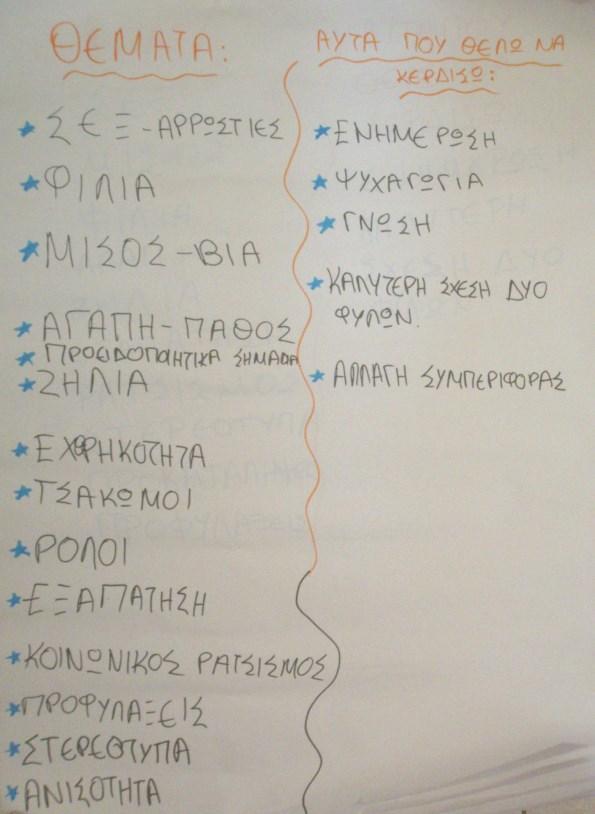 ΘΕΜΑΤΑ:
* ΣΕΞ-ΑΡΡΩΣΤΙΕΣ
* ΦΙΛΙΑ
* ΜΙΣΟΣ-ΒΙΑ
* ΑΓΑΠΗ-ΠΑΘΟΣ
* ΠΡΟΕΙΔΟΠΟΙΗΤΙΚΑ ΣΗΜΑΔΙΑ
* ΖΗΛΙΑ
* ΕΧΘΡΗΚΟΤΗΤΑ
* ΤΣΑΚΩΜΟΙ
* ΡΟΛΟΙ
* ΕΞΑΠΑΤΗΣΗ
* ΚΟΙΝΩΝΙΚΟΣ ΡΑΤΣΙΣΜΟΣ
* ΠΡΟΦΥΛΑΞΕΙΣ
* ΣΤΕΡΕΟΤΥΠΑ
* ΑΝΙΣΟΤΗΤΑ
ΑΥΤΑ ΠΟΥ ΘΕΛΩ ΝΑ
ΚΕΡΔΙΣΩ:
* ΕΝΗΜΕΡΩΣΗ
* ΨΥΧΑΓΩΓΙΑ
* ΓΝΩΣΗ
* ΚΑΛΥΤΕΡΗ ΣΧΕΣΗ ΔΥΟ
ΦΥΛΩΝ.
* ΑΛΛΑΓΗ ΣΥΜΠΕΡΙΦΟΡΑΣ